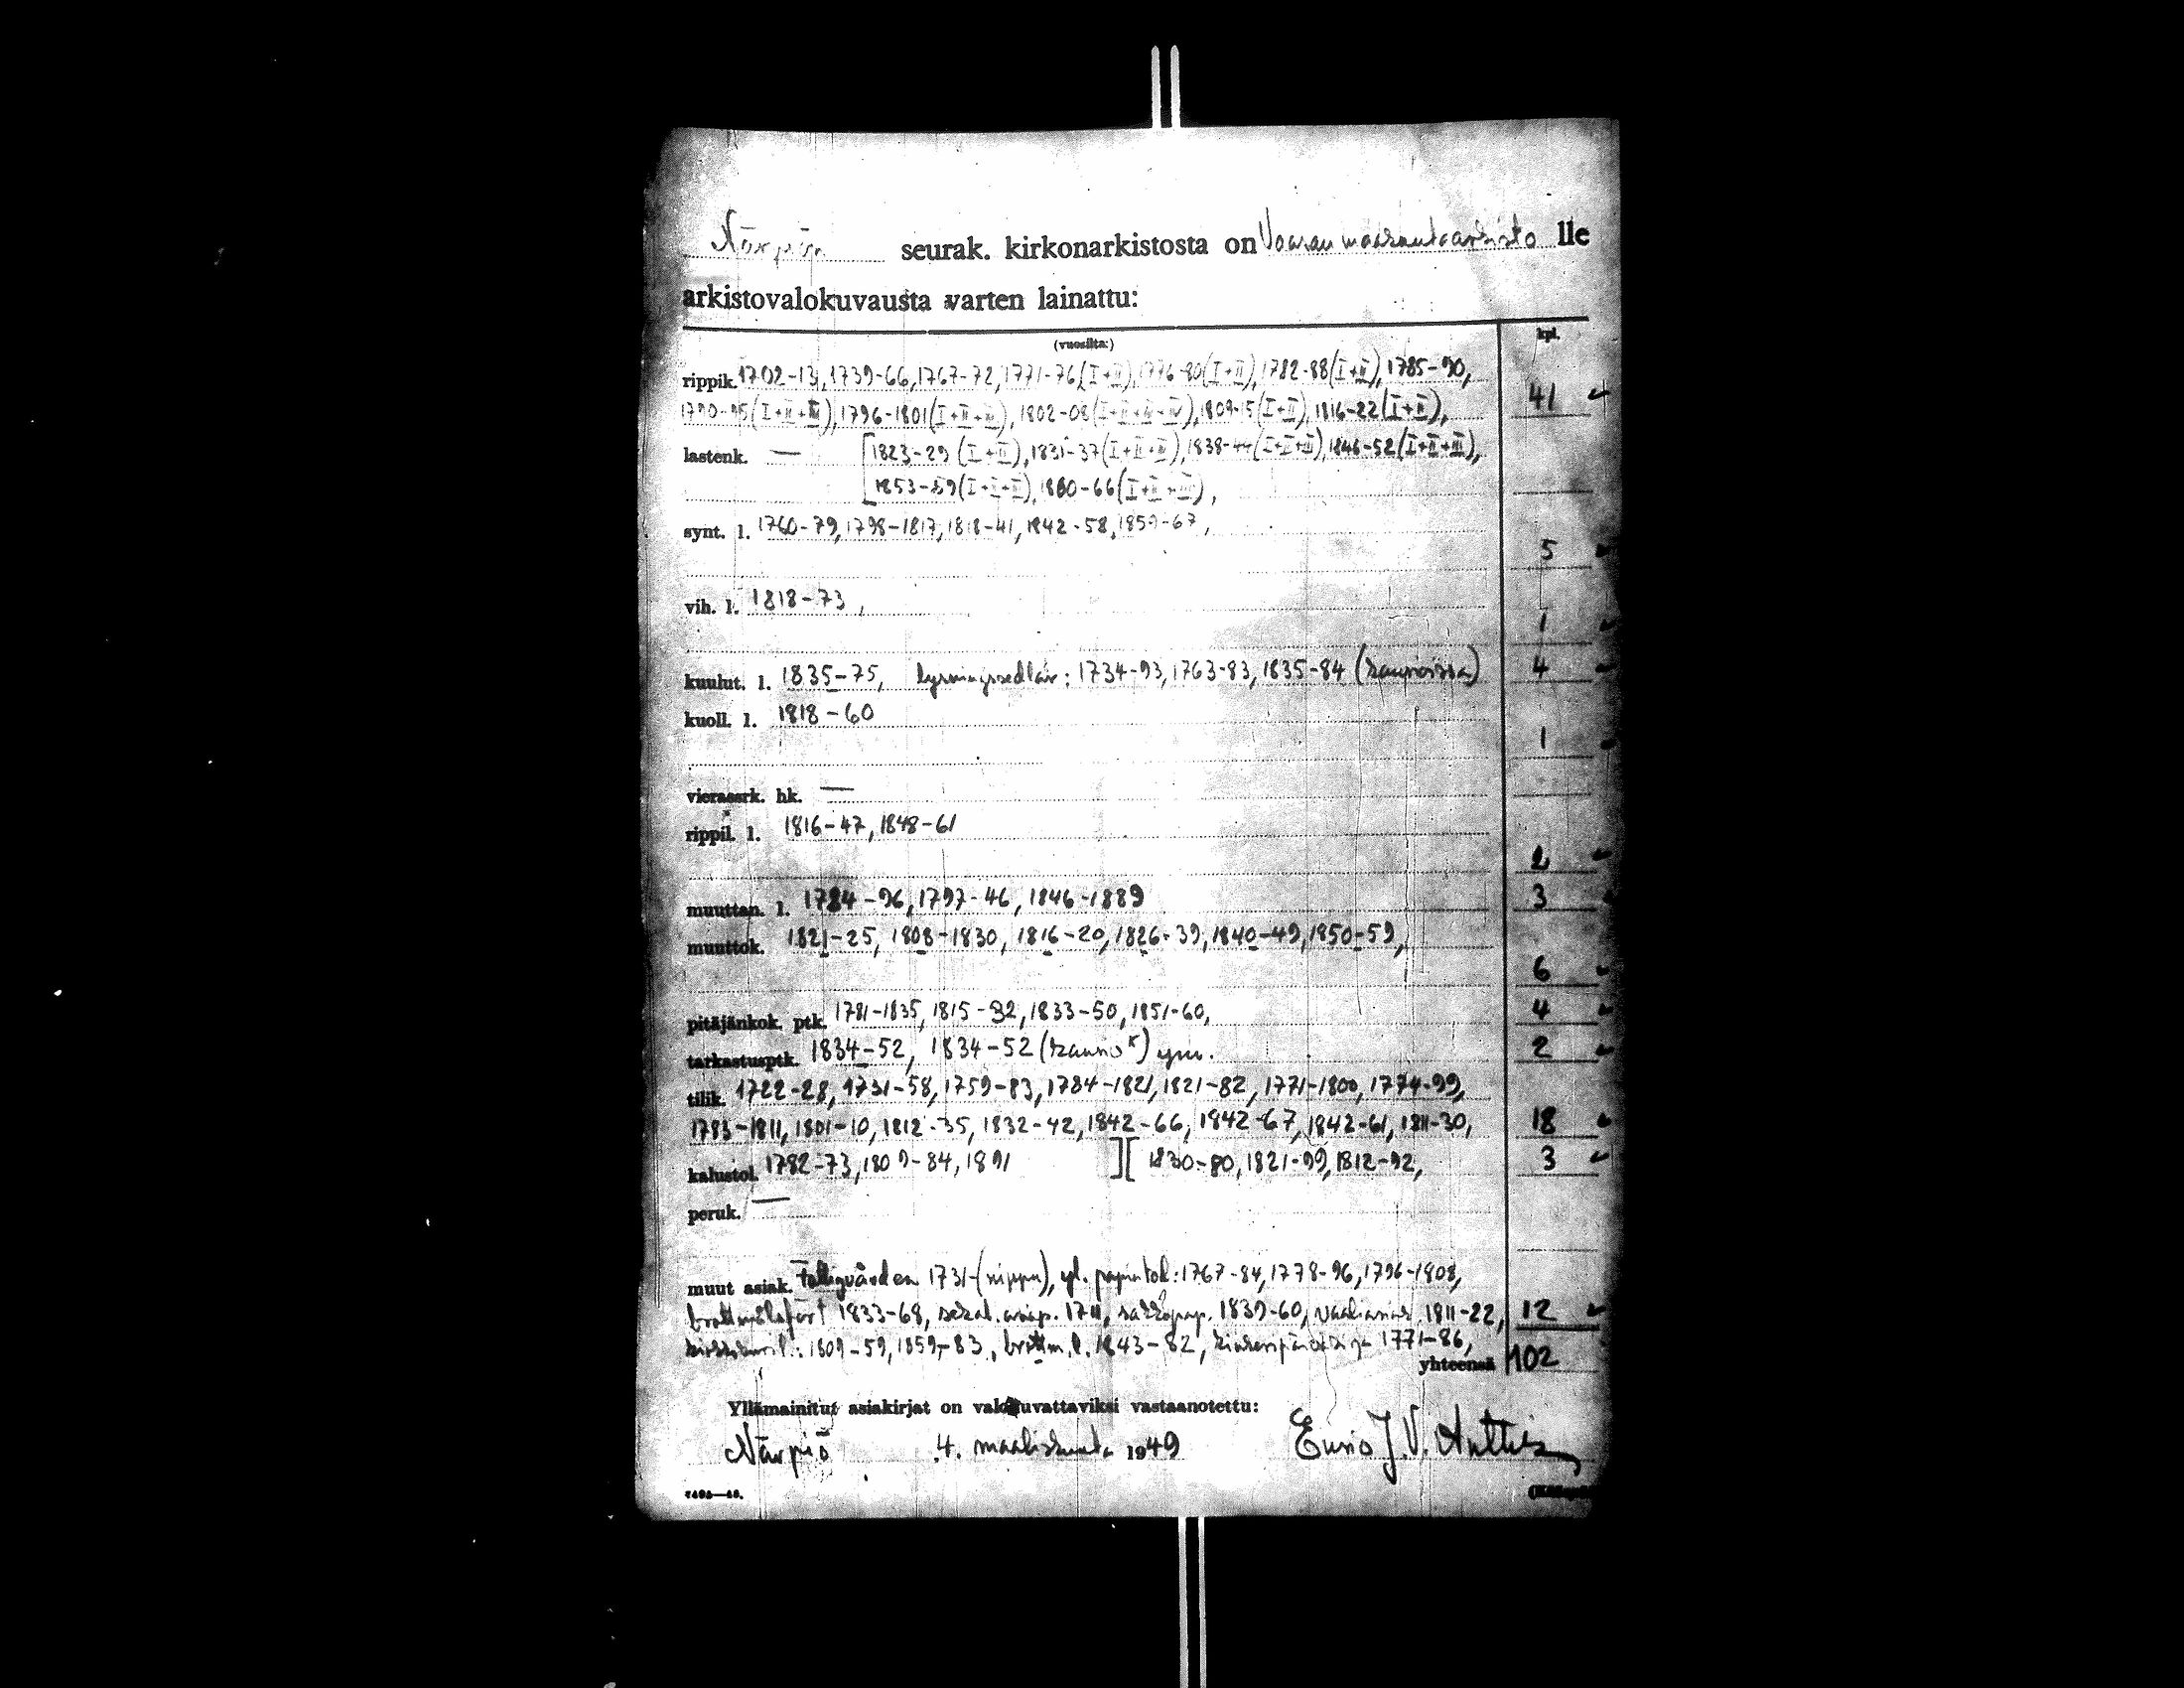 Närpiön seurak. kirkonarkistosta on Vaasan maakunta-arkisto lle
arkistovalokuvausta varten lainattu:
(vuosilta:) kpl.
rippik. 1702-13, 1739-66, 1767-72, 1771-76 (I+II), 1776-80 (I+II), 1782-88 (I+II), 1785-90,
1790-95 (I+II+III), 1796-1801 (I+II+III), 1802-08 (I+II+III+IV), 1809-15 (I+II), 1816-22 (I+II), 41
lastenk. — [1823-29 (I+II), 1831-37 (I+II+III), 1838-44 (I+II+III), 1846-52 (I+II+III),
1853-59 (I+II+III), 1860-66 (I+II+III),
synt. l. 1760-79, 1798-1817, 1818-41, 1842-58, 1859-67,
5
vih. l. 1818-73,
1
kuulut. l. 1835-75, lysningssedlar: 1734-93, 1763-83, 1835-84 (kansioissa) 4
kuoll. l. 1818-60
1
vierasrk. hk. —
rippil. l. 1816-47, 1848-61
2
muuttan. l. 1784-96, 1797-46, 1846-1889 3
muuttok. 1821-25, 1808-1830, 1816-20, 1826-39, 1840-49, 1850-59,
6
pitäjänkok. ptk. 1781-1835, 1815-32, 1833-50, 1851-60, 4
tarkastusptk. 1834-52, 1834-52 (kansio) ym. 2
tilik. 1722-28, 1731-58, 1759-83, 1784-1821, 1821-82, 1771-1800, 1774-99,
1783-1811, 1801-10, 1812-35, 1832-42, 1842-66, 1842-67, 1842-61, 1811-30, 18
kalustol. 1782-73, 1809-84, 1891 ][ 1830-80, 1821-99, 1812-92, 3
peruk. —
muut asiak. 1731- (nippu), yl. 1767-84, 1778-96, 1796-1808,
1833-68, sekal. 1711, 1839-60, 1811-22, 12
1809-59, 1859-83, brottm. l. 1843-82, 1771-86,
yhteensä 102
Yllämainitut asiakirjat on valokuvattaviksi vastaanotettu:
Närpiö 4. maaliskuuta 1949 J. V.